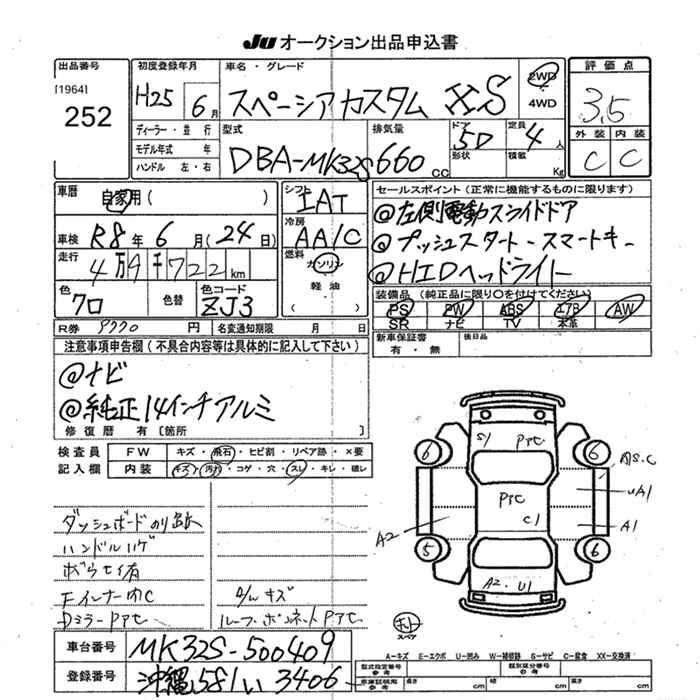 JU オークション出品申込書
出品番号
[1964]
252
初度登録年月
H25 6月
車名・グレード
スペーシアカスタム XS
2WD
4WD
評価点
3.5
外装 内装
C C
ディーラー・並行
モデル年式 年
ハンドル 左・右
型式
DBA-MK32S
排気量
660 CC
ドア 5D
形状
定員 4人
積載 Kg
車歴
自家用( )
車検 R8年 6月(24日)
走行
4万4千722km
色
クロ
色替
色コード
ZJ3
シフト
IAT
冷房
AA/C
燃料
ガソリン
軽油
( )
セールスポイント(正常に機能するものに限ります)
@左側電動スライドドア
@プッシュスタート-スマートキー
@HIDヘッドライト
装備品(純正品に限り○を付けてください)
PS PW ABS エアB AW
SR ナビ TV 本革
R券 9770円 名変通知期限 月 日
新車保証書
有・無
後日品
注意事項申告欄(不具合内容等は具体的に記入して下さい)
@ナビ
@純正14インチアルミ
修復歴 有〔箇所 〕
検査員
記入欄
FW キズ・飛石・ヒビ割・リペア跡・×要
内装 キズ・汚れ・コゲ・穴・スレ・キレ・破レ
ダッシュボードのり跡
ハンドルハゲ
Dミラー PTC
S/W キズ
ルーフ・ボンネット PTC
6 6
5 6
S1 PTC
PTC
C1
A2 U1
A2
AS.C
UA1
A1
スペア
A-キズ E-エクボ U-凹み W-補修跡 S-サビ C-腐食 XX-交換済
車台番号 MK32S-500409
登録番号 沖縄581い3406
型式指定番号
参考
類別区分番号
参考
車庫証明用
参考
長さ cm 幅 cm 高さ cm